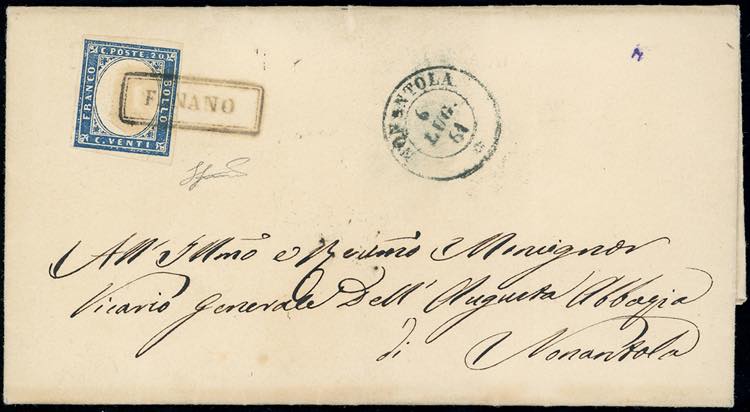 C. POSTE. 20
FRANCO
BOLLO
C. VENTI
F NANO
NONANTOLA
6
LUG.
61
All' Illmo e Revmo Monsignor
Vicario Generale Dell' Augusta Abbazia
di
Nonantola